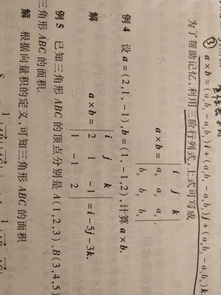 ① a×b=(a_y b_z-a_z b_y)i+(a_z b_x-a_x b_z)j+(a_x b_y-a_y b_x)k
为了帮助记忆,利用三阶行列式,上式可写成
i j k
a×b= a_x a_y a_z .
b_x b_y b_z
例 4 设 a=(2,1,-1),b=(1,-1,2),计算 a×b.
i j k
解 a×b= 2 1 -1 =i-5j-3k.
1 -1 2
例 5 已知三角形 ABC 的顶点分别是 A(1,2,3),B(3,4,5)
三角形 ABC 的面积.
解 根据向量积的定义,可知三角形 ABC 的面积